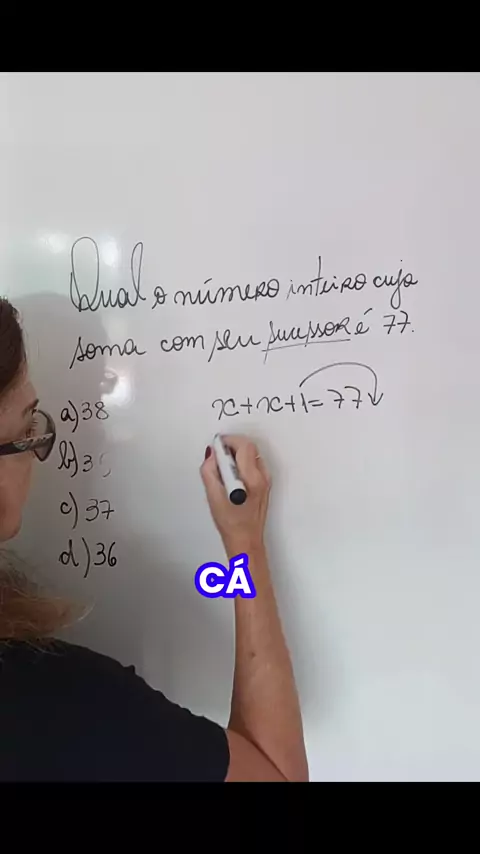 Qual o número inteiro cuja
soma com seu sucessor é 77.
x+x+1=77
a) 38
b) 3
c) 37
d) 36
CÁ